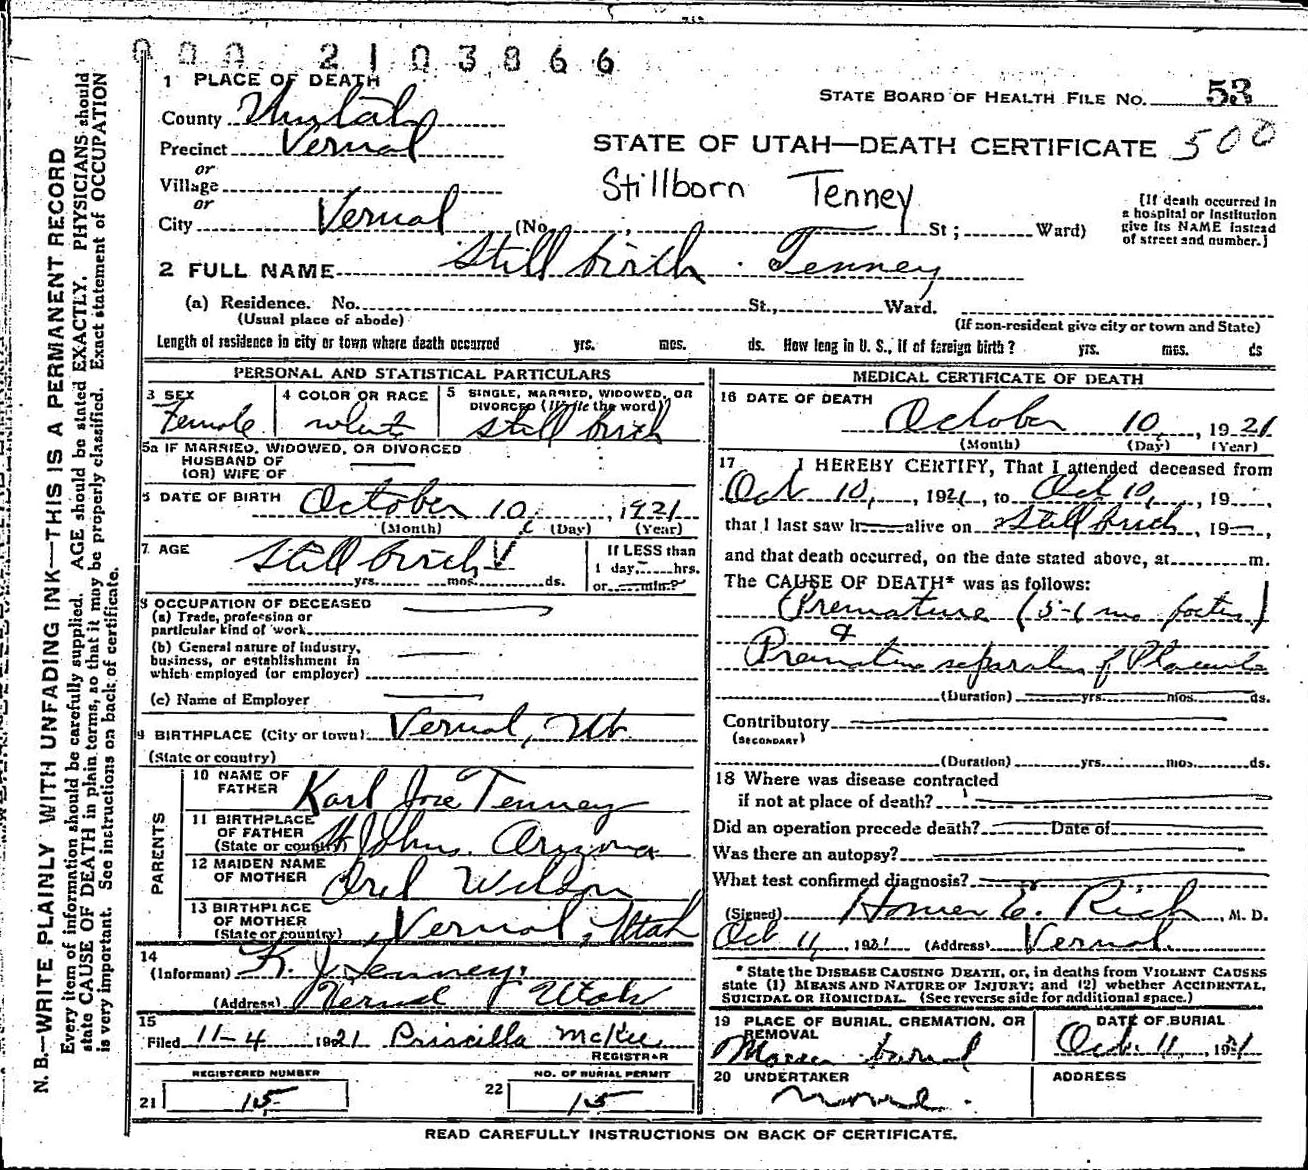 000 2103866
1 PLACE OF DEATH
STATE BOARD OF HEALTH FILE NO. 53
County Uintah
Precinct Vernal
STATE OF UTAH—DEATH CERTIFICATE 500
or
Village
Stillborn Tenney
or
City Vernal (No. St; Ward)
[If death occurred in
a hospital or institution
give its NAME instead
of street and number.]
2 FULL NAME Still birth Tenney
(a) Residence. No. St., Ward.
(Usual place of abode)
(If non-resident give city or town and State)
Length of residence in city or town where death occurred yrs. mos. ds. How long in U. S., if of foreign birth? yrs. mos. ds
PERSONAL AND STATISTICAL PARTICULARS
3 SEX
Female
4 COLOR OR RACE
white
5 SINGLE, MARRIED, WIDOWED, OR
DIVORCED (Write the word)
still birth
5a IF MARRIED, WIDOWED, OR DIVORCED
HUSBAND OF
(OR) WIFE OF
6 DATE OF BIRTH October 10, 1921
(Month) (Day) (Year)
7 AGE Still birth
yrs. mos. ds.
If LESS than
1 day, hrs.
or min.?
8 OCCUPATION OF DECEASED
(a) Trade, profession or
particular kind of work
(b) General nature of industry,
business, or establishment in
which employed (or employer)
(c) Name of Employer
9 BIRTHPLACE (City or town) Vernal, Ut
(State or country)
PARENTS
10 NAME OF
FATHER Karl Joze Tenney
11 BIRTHPLACE
OF FATHER
(State or country) St Johns. Arizona
12 MAIDEN NAME
OF MOTHER Orel Wilson
13 BIRTHPLACE
OF MOTHER
(State or country) Vernal, Utah
14
(Informant) K. J. Tenney
(Address) Vernal Utah
15
Filed 11-4 1921 Priscilla McKee
REGISTRAR
REGISTERED NUMBER
21 15
NO. OF BURIAL PERMIT
22 15
MEDICAL CERTIFICATE OF DEATH
16 DATE OF DEATH
October 10, 1921
(Month) (Day) (Year)
17 I HEREBY CERTIFY, That I attended deceased from
Oct 10, 1921, to Oct 10, 19
that I last saw h alive on still birth, 19
and that death occurred, on the date stated above, at m.
The CAUSE OF DEATH* was as follows:
Premature (5-6 mo foetus)
&
Premature separation of Placenta
(Duration) yrs. mos. ds.
Contributory
(SECONDARY)
(Duration) yrs. mos. ds.
18 Where was disease contracted
if not at place of death?
Did an operation precede death? Date of
Was there an autopsy?
What test confirmed diagnosis?
(Signed) Homer E. Rich, M. D.
Oct 11, 1921 (Address) Vernal.
* State the DISEASE CAUSING DEATH, or, in deaths from VIOLENT CAUSES
state (1) MEANS AND NATURE OF INJURY; and (2) whether ACCIDENTAL,
SUICIDAL OR HOMICIDAL. (See reverse side for additional space.)
19 PLACE OF BURIAL, CREMATION, OR
REMOVAL
burial
DATE OF BURIAL
Oct. 11, 1921
20 UNDERTAKER
ADDRESS
READ CAREFULLY INSTRUCTIONS ON BACK OF CERTIFICATE.
N. B.—WRITE PLAINLY WITH UNFADING INK—THIS IS A PERMANENT RECORD
Every item of information should be carefully supplied. AGE should be stated EXACTLY. PHYSICIANS should
state CAUSE OF DEATH in plain terms, so that it may be properly classified. Exact statement of OCCUPATION
is very important. See instructions on back of certificate.